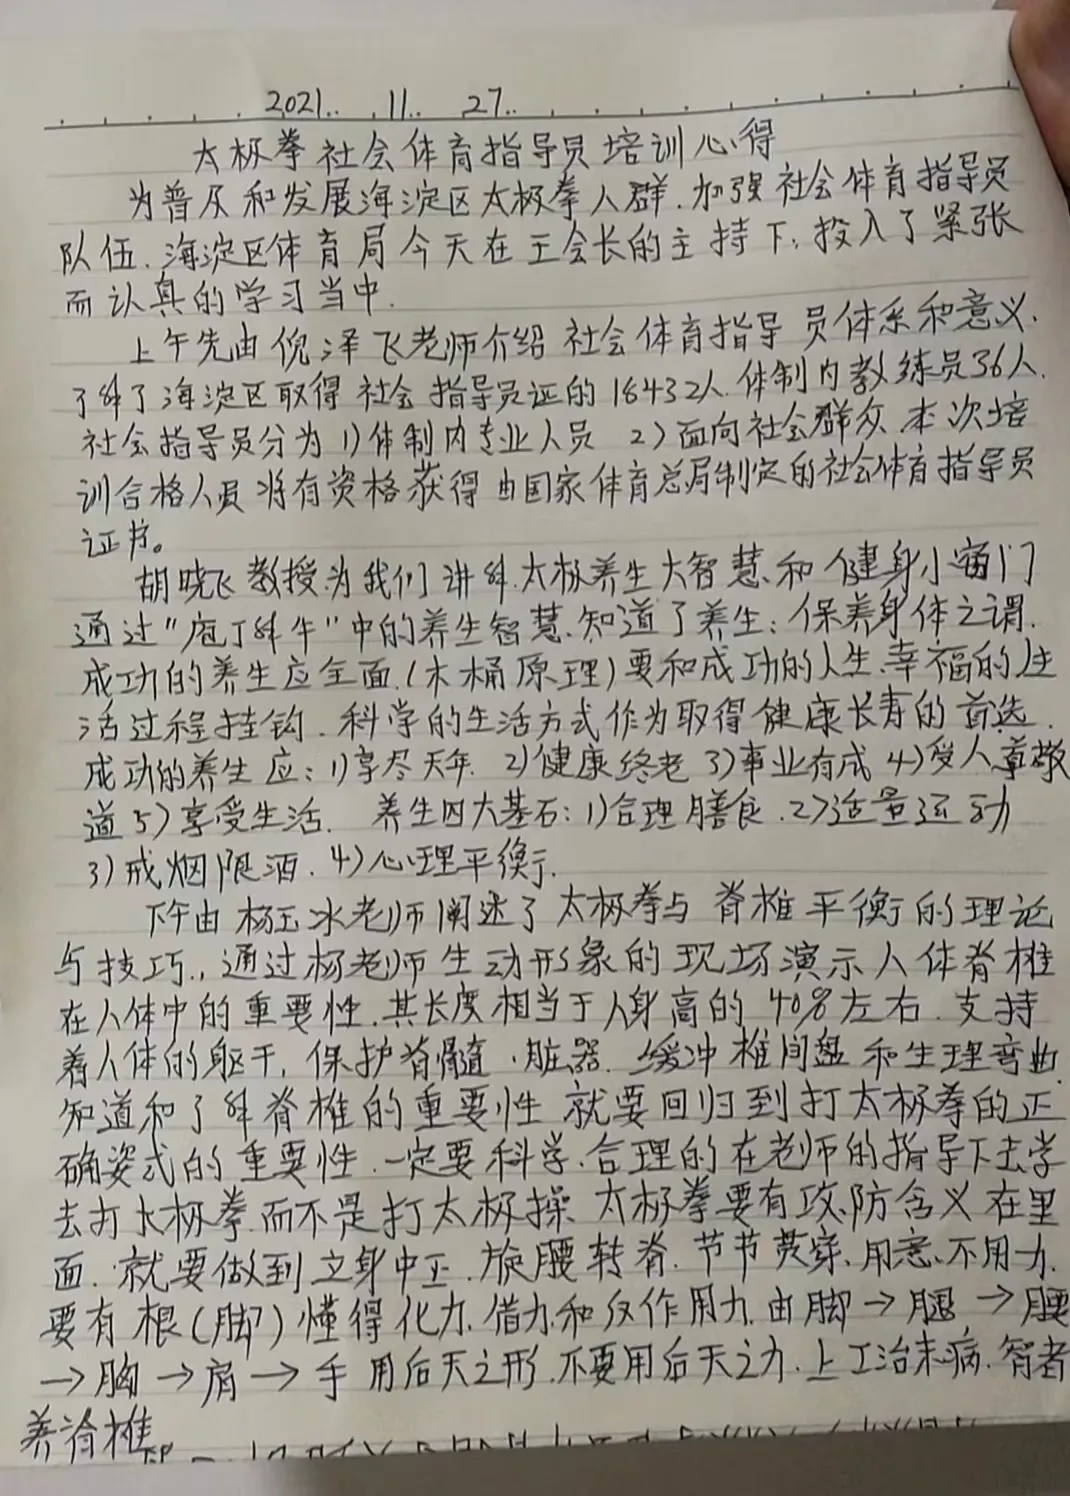 2021.. 11.. 27..
太极拳社会体育指导员培训心得
为普及和发展海淀区太极拳人群.加强社会体育指导员
队伍.海淀区体育局今天在王会长的主持下.投入了紧张
而认真的学习当中.
上午先由倪泽飞老师介绍社会体育指导员体系和意义.
了解了海淀区取得社会指导员证的18432人.体制内教练员36人.
社会指导员分为1)体制内专业人员 2)面向社会群众.本次培
训合格人员将有资格获得由国家体育总局制定的社会体育指导员
证书。
胡晓飞教授为我们讲解.太极养生大智慧和健身小窍门
通过"庖丁解牛"中的养生智慧.知道了养生:保养身体之谓.
成功的养生应全面.(木桶原理)要和成功的人生.幸福的生
活过程挂钩.科学的生活方式作为取得健康长寿的首选.
成功的养生应:1)享尽天年 2)健康终老 3)事业有成 4)受人尊敬
道 5)享受生活. 养生四大基石:1)合理膳食.2)适量运动
3)戒烟限酒.4)心理平衡.
下午由杨玉冰老师阐述了太极拳与脊椎平衡的理论
与技巧.,通过杨老师生动形象的现场演示人体脊椎
在人体中的重要性.其长度相当于人身高的40%左右.支持
着人体的躯干,保护脊髓.脏器.缓冲椎间盘和生理弯曲.
知道和了解脊椎的重要性.就要回归到打太极拳的正
确姿式的重要性.一定要科学.合理的在老师的指导下去学
去打太极拳.而不是打太极操.太极拳要有攻防含义在里
面.就要做到立身中正.旋腰转脊.节节贯穿.用意不用力.
要有根(脚)懂得化力.借力和反作用力.由脚→腿→腰
→胸→肩→手 用后天之形.不要用后天之力.上工治未病.智者
养脊椎